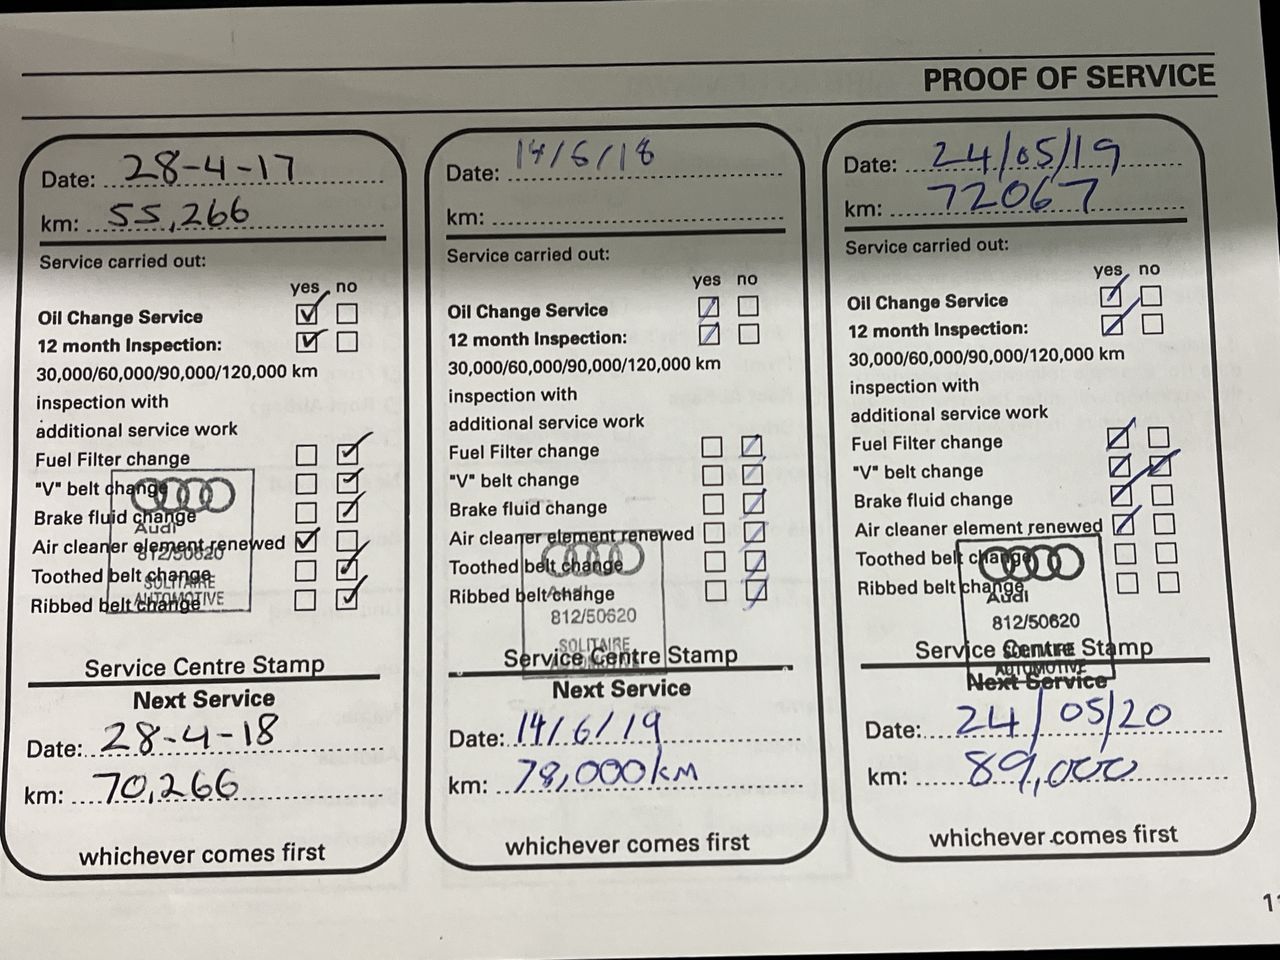 PROOF OF SERVICE
Date: 28-4-17
km: 55,266
Service carried out:
yes no
Oil Change Service
12 month Inspection:
30,000/60,000/90,000/120,000 km
inspection with
additional service work
Fuel Filter change
"V" belt change
Brake fluid change
Audi
Air cleaner element renewed
812/50620
Toothed belt change
SOLITAIRE
AUTOMOTIVE
Ribbed belt change
Service Centre Stamp
Next Service
Date: 28-4-18
km: 70,266
whichever comes first
Date: 14/6/18
km:
Service carried out:
yes no
Oil Change Service
12 month Inspection:
30,000/60,000/90,000/120,000 km
inspection with
additional service work
Fuel Filter change
"V" belt change
Brake fluid change
Air cleaner element renewed
Toothed belt change
Audi
Ribbed belt change
812/50620
SOLITAIRE
Service Centre Stamp
Next Service
Date: 14/6/19
km: 78,000km
whichever comes first
Date: 24/05/19
km: 72067
Service carried out:
yes no
Oil Change Service
12 month Inspection:
30,000/60,000/90,000/120,000 km
inspection with
additional service work
Fuel Filter change
"V" belt change
Brake fluid change
Air cleaner element renewed
Toothed belt change
Ribbed belt change
Audi
812/50620
SOLITAIRE
Service Centre Stamp
AUTOMOTIVE
Next Service
Date: 24/05/20
km: 89,000
whichever comes first